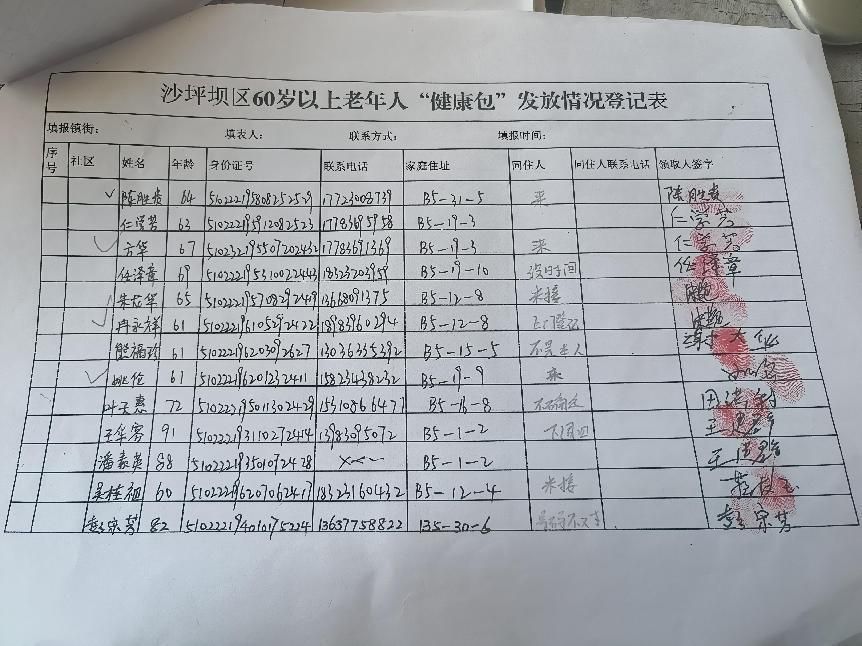 沙坪坝区60岁以上老年人“健康包”发放情况登记表
填报镇街： 填表人： 联系方式： 填报时间：
序号 社区 姓名 年龄 身份证号 联系电话 家庭住址 同住人 同住人联系电话 领取人签字
陈胜贵 64 510222195808252529 17723008739 B5-31-5 来 陈胜贵
仁学芳 63 510222195912082523 17783695958 B5-19-3 仁学芳
方华 67 510232195507202432 17783691369 B5-19-3 来 仁学芳
任泽章 69 510222195310022443 18323203959 B5-19-10 没时间 任泽章
朱花华 65 510222195708292419 13668091375 B5-12-8 未接
冉永祥 61 510222196105292422 18983960294 B5-12-8
熊福珍 61 510222196203092627 13036335392 B5-15-5 不是本人
姚伦 61 510222196201232411 15823438232 B5-19-9 来
叶玉惠 72 510222195011302429 15310866477 B5-16-8
王华容 91 510222193110272414 13983095072 B5-1-2
潘素英 88 510222193501072428 B5-1-2
吴桂祖 60 510222196207062417 18323160432 B5-12-4 未接
彭宗芳 82 510222194010175224 13637758822 135-30-6 彭宗芳